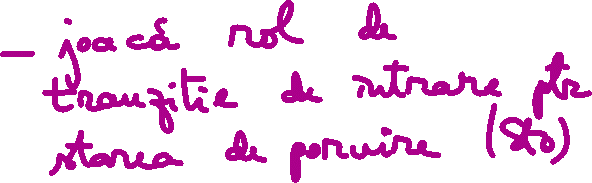 — joacă rol de
tranziție de intrare ptr
starea de pornire (St0)